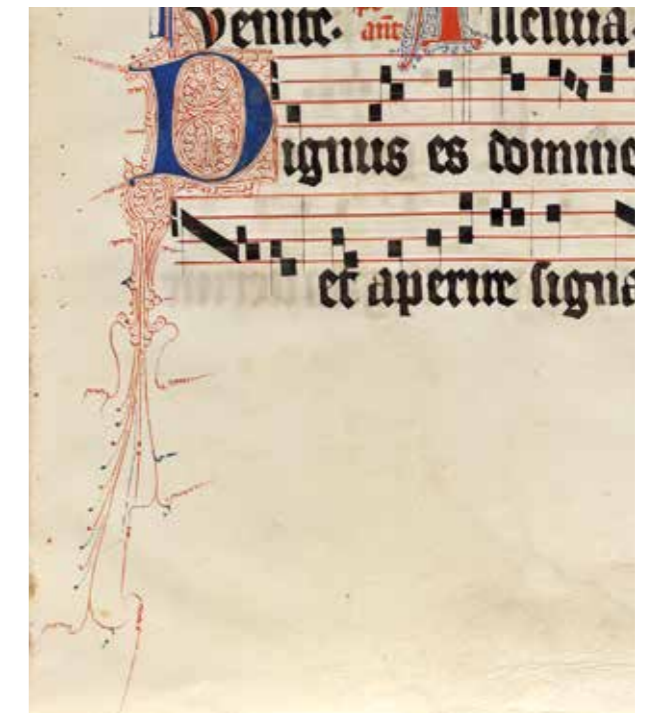 Venite. ps añt Alleluia.
Dignus es domine
et aperire signa